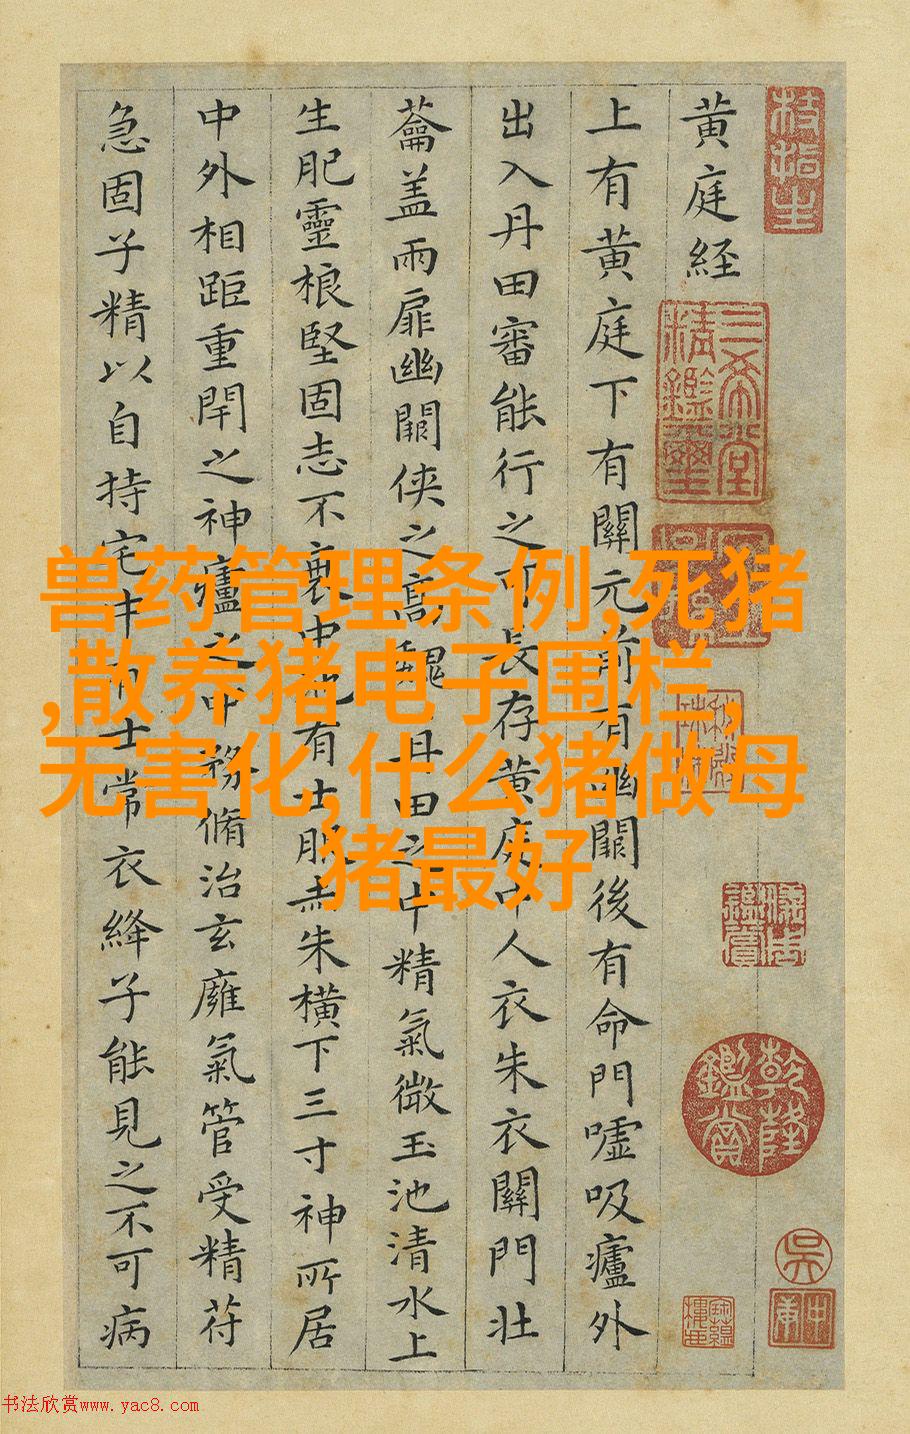 黄庭経
上有黄庭下有關元前有幽闕後有命門嘘吸廬外
出入丹田審能行之可長存黄庭中人衣朱衣關門壯
蘥盖兩扉幽闕侠之高魏丹田之中精氣微玉池清水上
生肥靈根堅固志不衰中池有士服赤朱横下三寸神所居
中外相距重閇之神廬之中務脩治玄廱氣管受精苻
急固子精以自持宅中有士常衣絳子能見之不可病
三希堂精鑑璽
乾隆鑑賞
吳
兽药管理条例,死猪
,散养猪电子围栏,
无害化,什么猪做母
猪最好
书法欣赏www.yac8.com